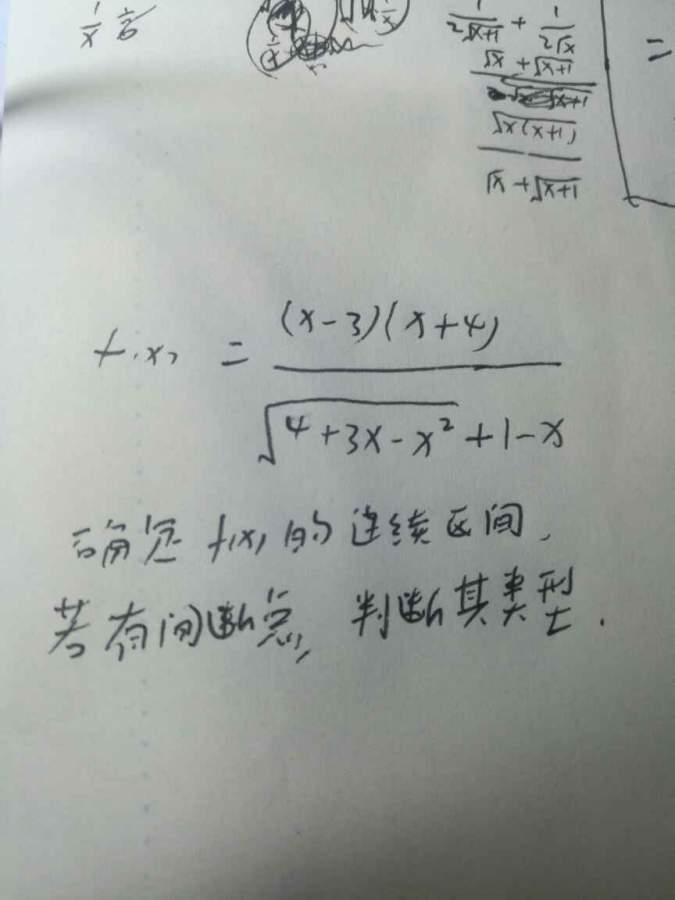 1/x 1/6
1/x
1/(2√(x+1)) + 1/(2√x)
√x + √(x+1)
√(x(x+1))
√x + √(x+1)
=
f(x) = (x-3)(x+4) / (√(4+3x-x²) + 1-x)
确定 f(x) 的连续区间,
若有间断点, 判断其类型.